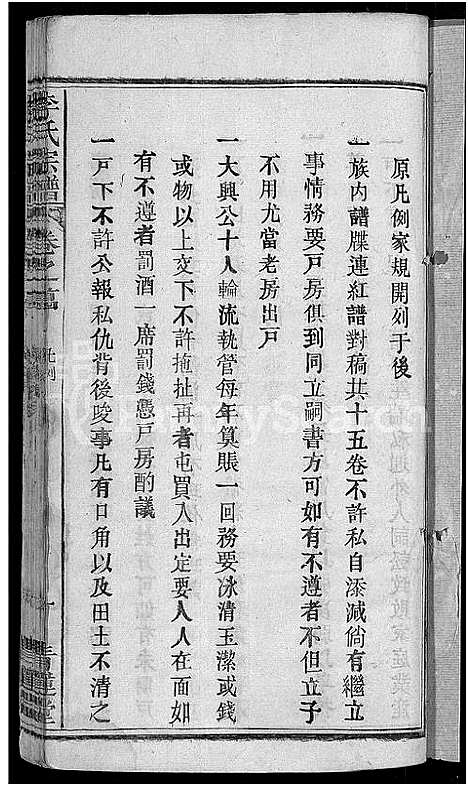 原凡例家規開列于後
一族內譜牒連紅譜對稿共十五卷不許私自添減倘有繼立
事情務要戶房俱到同立嗣書方可如有不遵者不但立子
不用尤當老房出戶
一大興公十人輪流執管每年算賬一回務要冰清玉潔或錢
或物以上交下不許拖扯再者屯買入出定要人人在面如
有不遵者罰酒一席罰錢憑戶房酌議
一戶下不許公報私仇背後唆事凡有口角以及田土不清之
李氏宗譜